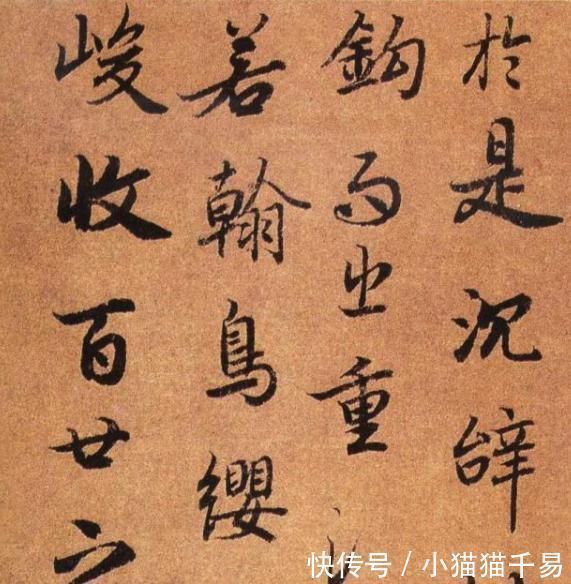 於是沉辝
鈎而出重
若翰鳥纓
峻收百世
快传号 / 小猫猫千易